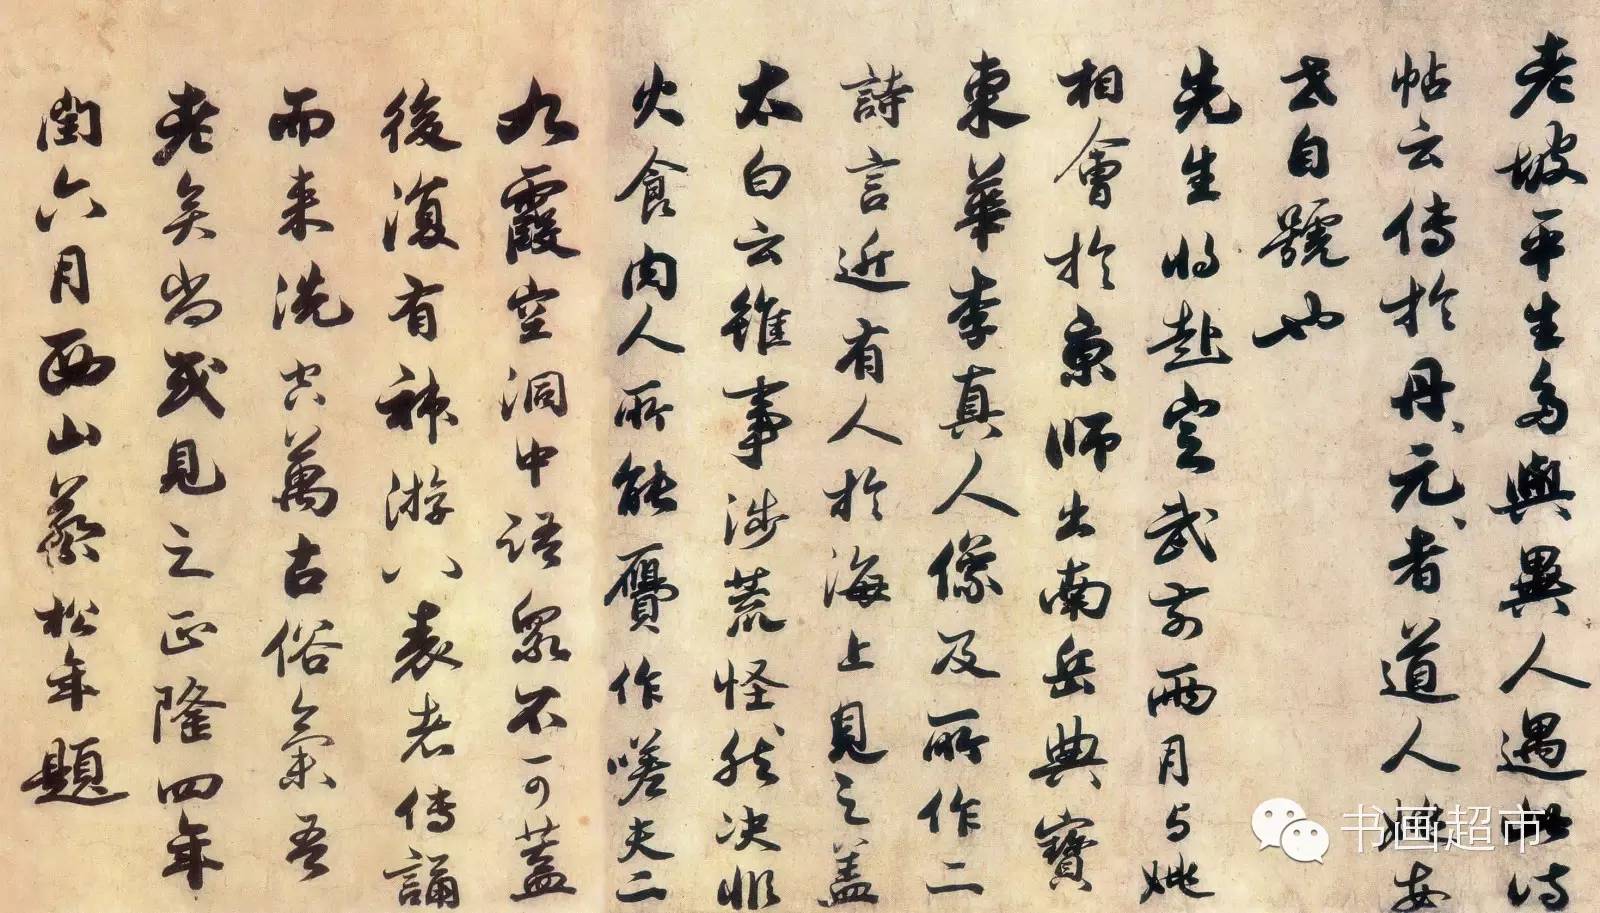 老坡平生多與異人遇如詩
帖云傳於丹元者道人姚安
世自號也
先生將赴定武前兩月与姚
相會於京師出南岳典寶
東華李真人像及所作二
詩言近有人於海上見之盖
太白云雖事涉荒怪然决非
火食肉人所能贗作嗟夫二
九霞空洞中語衆不可蓋
後復有神游八表者傳誦
而来洗空萬古俗氣吾
老矣尚或見之正隆四年
閏六月西山蔡松年題
书画超市